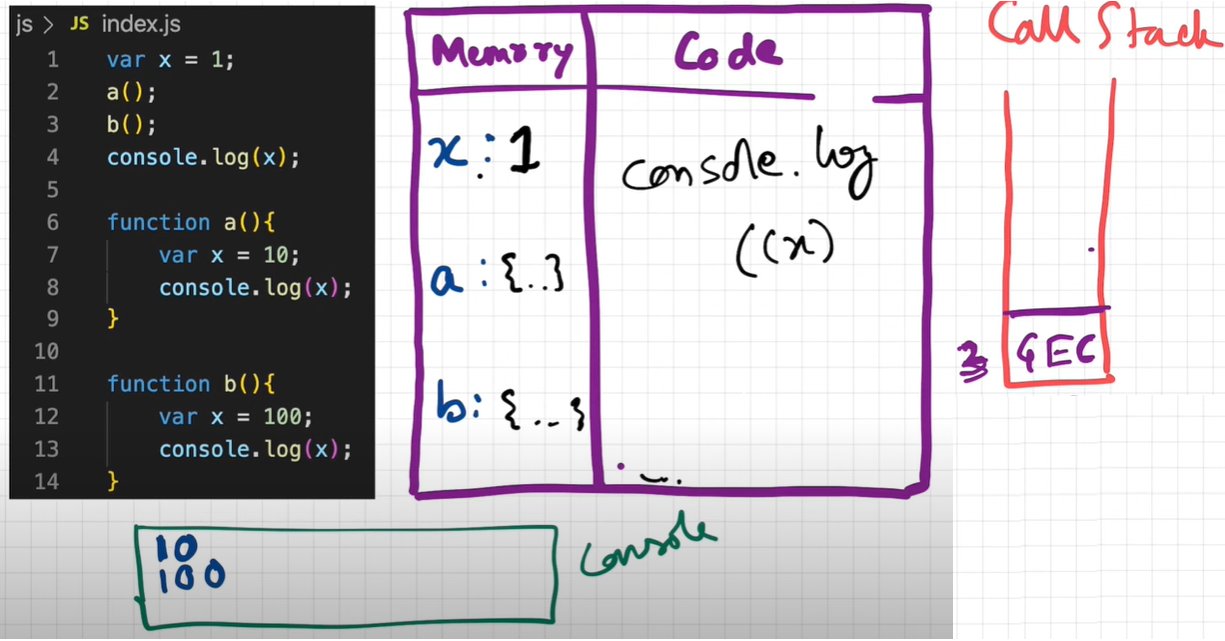 js > JS index.js
1 var x = 1;
2 a();
3 b();
4 console.log(x);
5
6 function a(){
7 var x = 10;
8 console.log(x);
9 }
10
11 function b(){
12 var x = 100;
13 console.log(x);
14 }
Memory Code
x : 1
console.log
((x)
a : {..}
b: {...}
Call Stack
GEC
10
100
Console